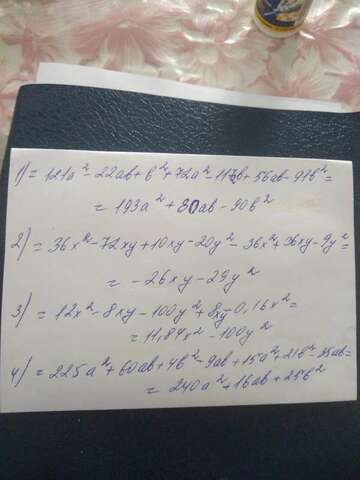 1) = 121a² - 22ab + b² + 72a² - 117ab + 56ab - 91b² =
= 193a² + 80ab - 90b²
2) = 36x² - 72xy + 10xy - 20y² - 36x² + 36xy - 9y² =
= -26xy - 29y²
3) = 12x² - 8xy - 100y² + 8xy - 0,16x² =
= 11,84x² - 100y²
4) = 225a² + 60ab + 4b² - 9ab + 15a² + 21b² - 35ab =
= 240a² + 16ab + 25b²